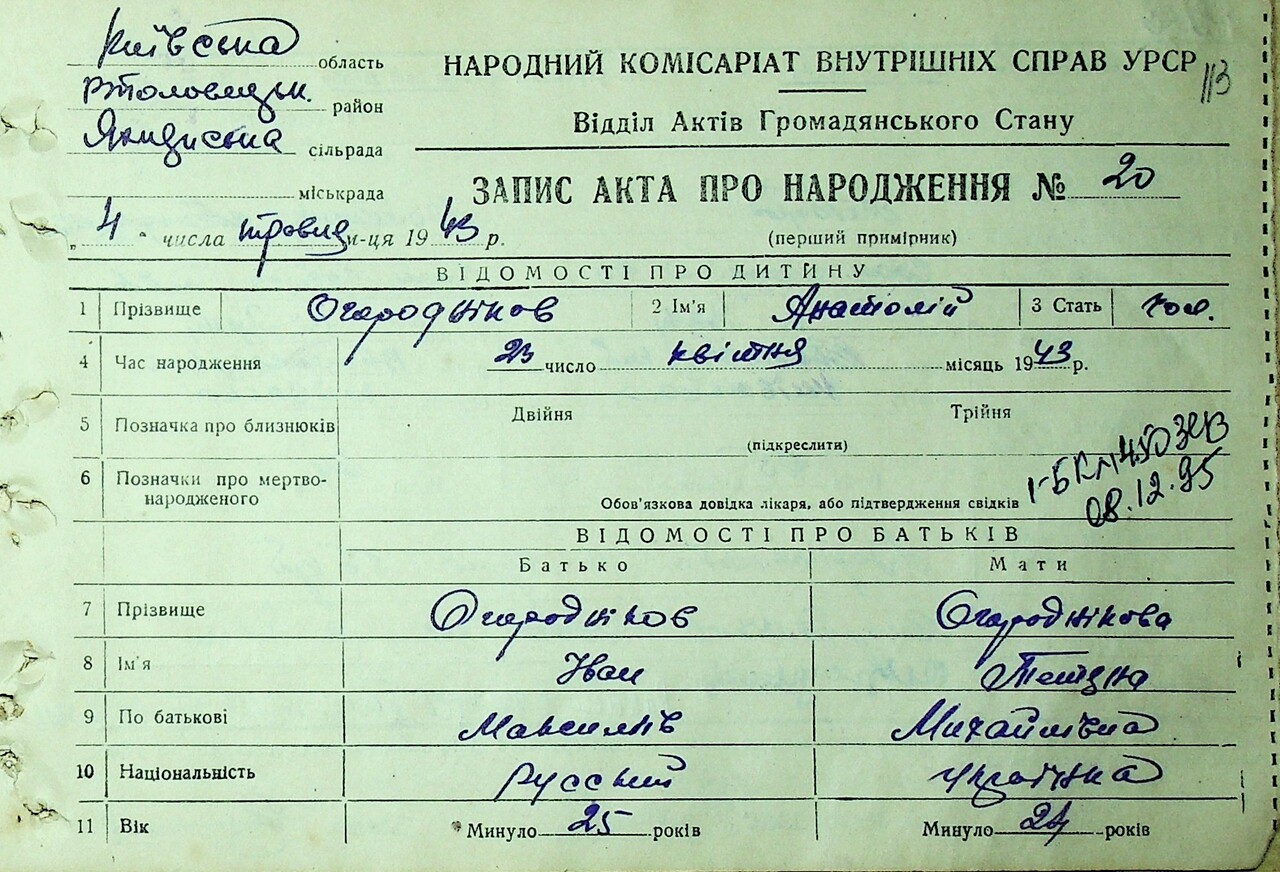 Київська область
район
сільрада
міськрада
„ 4 " числа травня м-ця 1943 р.
НАРОДНИЙ КОМІСАРІАТ ВНУТРІШНІХ СПРАВ УРСР
113
Відділ Актів Громадянського Стану
ЗАПИС АКТА ПРО НАРОДЖЕННЯ № 20
(перший примірник)
ВІДОМОСТІ ПРО ДИТИНУ
1 Прізвище Огородніков 2 Ім'я Анатолій 3 Стать чол.
4 Час народження 23 число квітня місяць 1943 р.
5 Позначка про близнюків Двійня Трійня
(підкреслити)
6 Позначки про мертво-
народженого
Обов'язкова довідка лікаря, або підтвердження свідків
08.12.95
ВІДОМОСТІ ПРО БАТЬКІВ
Батько Мати
7 Прізвище Огородніков Огороднікова
8 Ім'я Іван Тетяна
9 По батькові Максимів Михайлівна
10 Національність русский українка
11 Вік Минуло 25 років Минуло 24 років